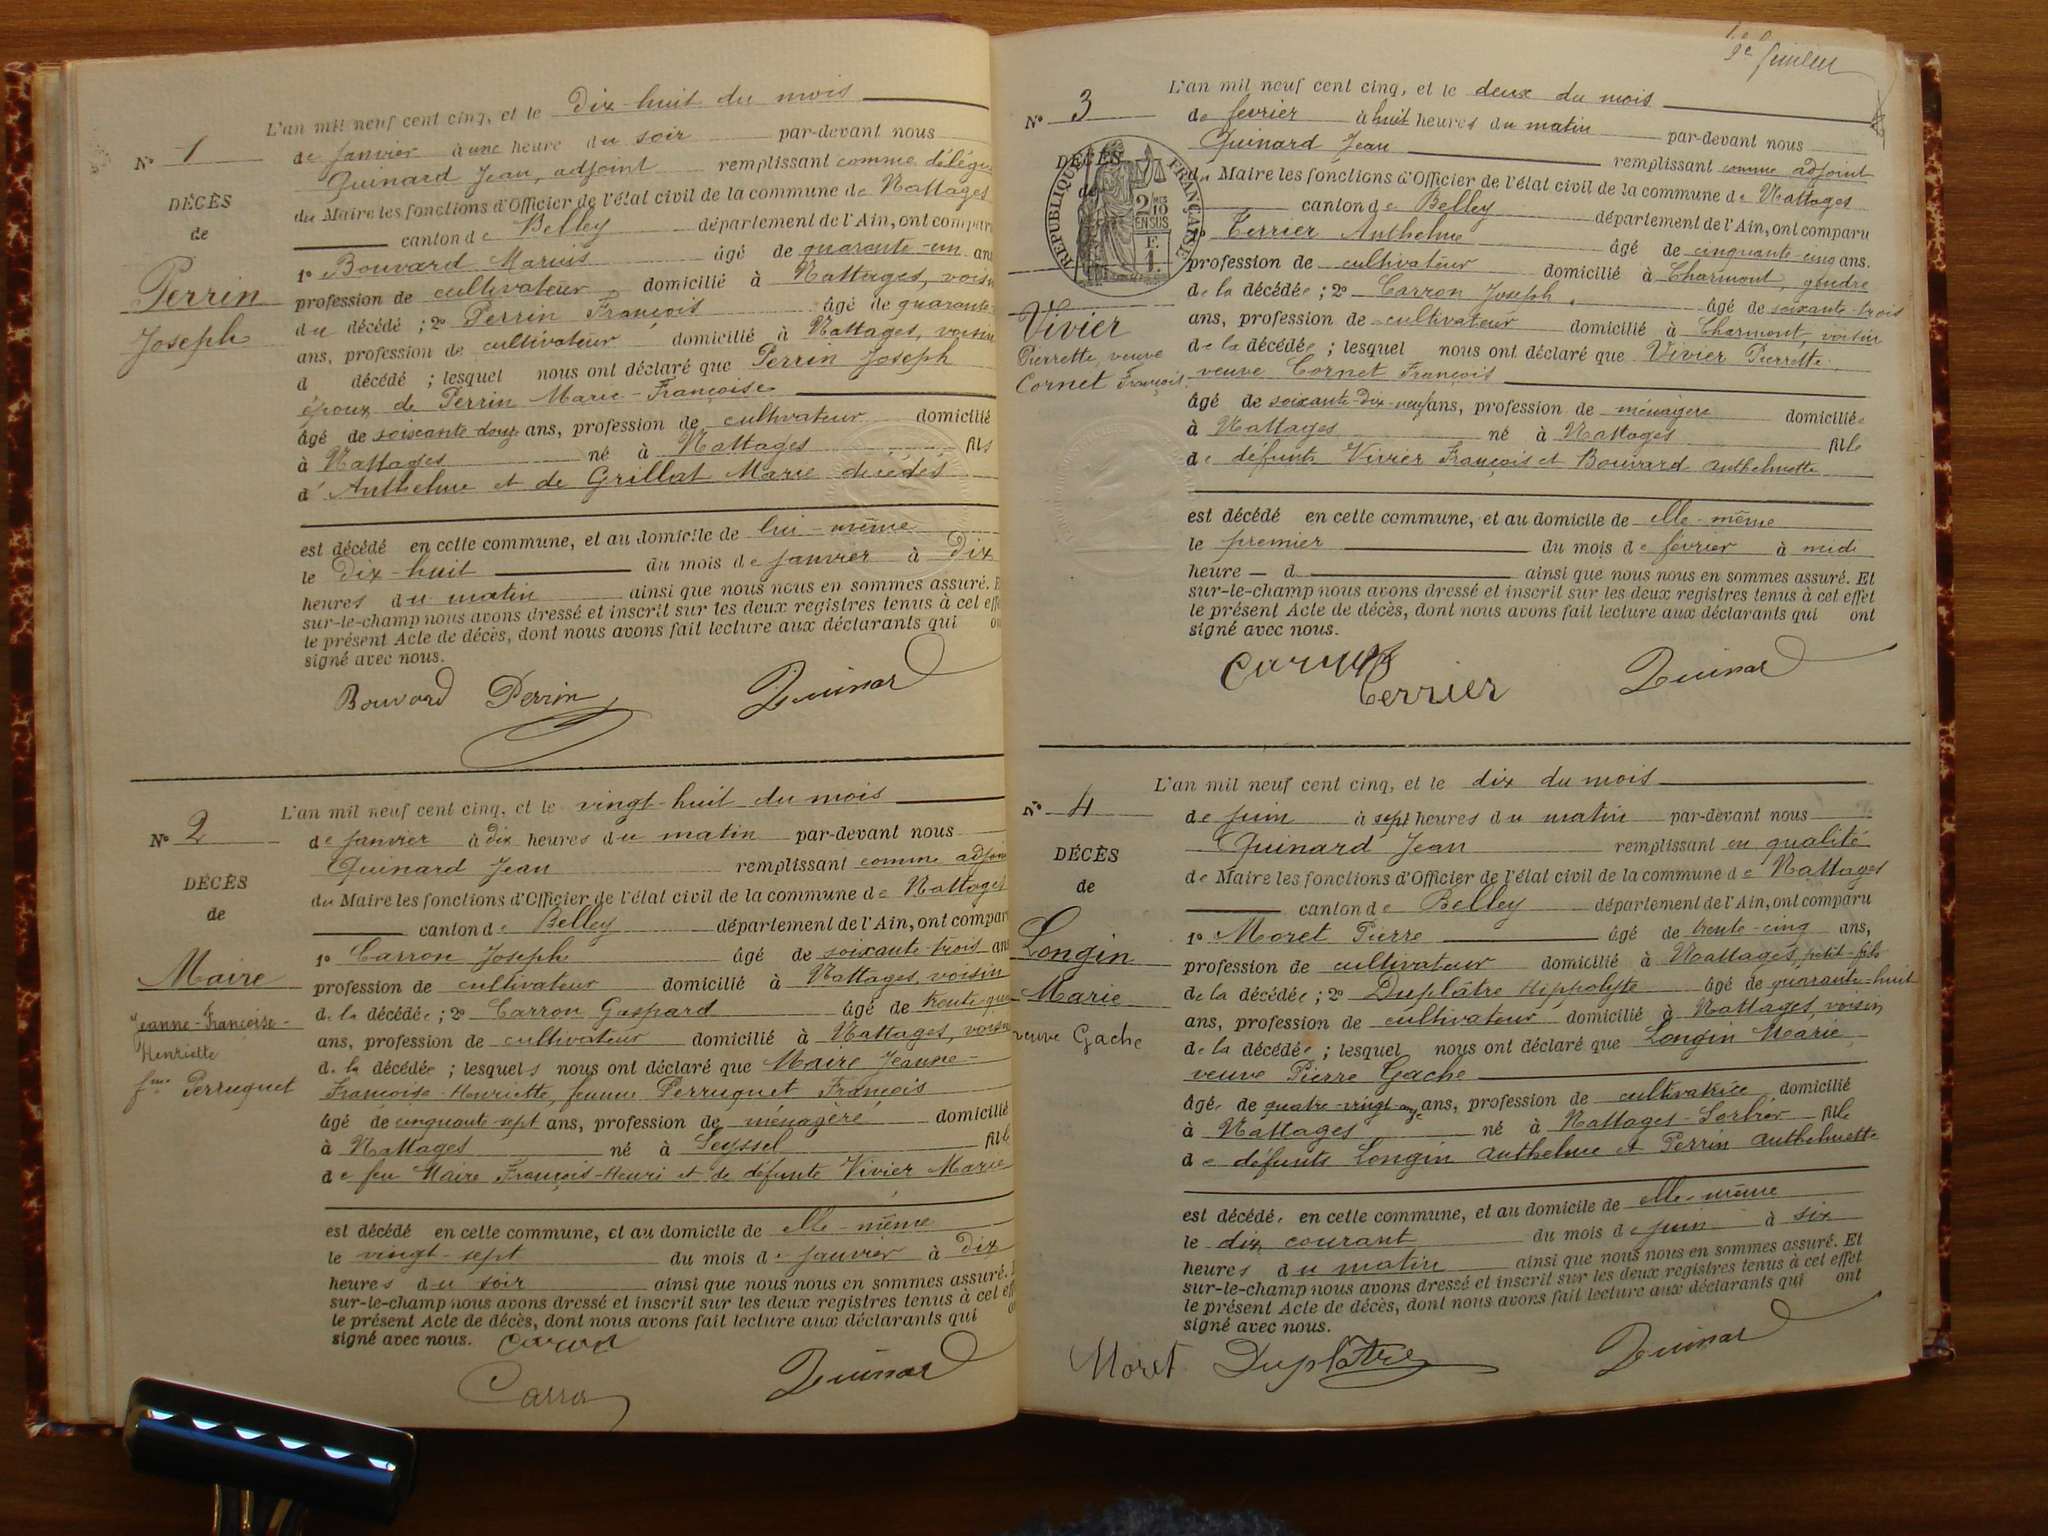 L'an mil neuf cent cinq, et le dix-huit du mois
N° 1
de janvier à une heure du soir par-devant nous
Quinard Jean, adjoint remplissant comme délégué
DÉCÈS
du Maire les fonctions d'Officier de l'état civil de la commune de Nattages
de
canton de Belley département de l'Ain, ont comparu
1° Bouvard Marius âgé de quarante-un ans
Perrin
profession de cultivateur domicilié à Nattages, voisin
Joseph
du décédé ; 2° Perrin François âgé de quarante-
ans, profession de cultivateur domicilié à Nattages, voisin
d décédé ; lesquel nous ont déclaré que Perrin Joseph
époux de Perrin Marie-Françoise
âgé de soixante-douze ans, profession de cultivateur domicilié
à Nattages né à Nattages fils
d'Anthelme et de Grillat Marie décédés
est décédé en cette commune, et au domicile de lui-même
le dix-huit du mois de janvier à dix
heures du matin ainsi que nous nous en sommes assuré. E
sur-le-champ nous avons dressé et inscrit sur les deux registres tenus à cet effe
le présent Acte de décès, dont nous avons fait lecture aux déclarants qui on
signé avec nous.
Bouvard Perrin Quinard
L'an mil neuf cent cinq, et le vingt-huit du mois
N° 2
de janvier à dix heures du matin par-devant nous
Quinard Jean remplissant comme adjoin
DÉCÈS
du Maire les fonctions d'Officier de l'état civil de la commune de Nattages
de
canton de Belley département de l'Ain, ont compar
1° Carron Joseph âgé de soixante-trois ans
Maire
profession de cultivateur domicilié à Nattages, voisin
Jeanne-Françoise-
de la décédée ; 2° Carron Gaspard âgé de trente-qua
Henriette
ans, profession de cultivateur domicilié à Nattages, voisin
fme Perruquet
de la décédée ; lesquels nous ont déclaré que Maire Jeanne-
Françoise-Henriette, femme Perruquet François
âgé de cinquante-sept ans, profession de ménagère domicilié
à Nattages né à Seyssel fille
de feu Maire François-Henri et de défunte Vivier Marie
est décédé en cette commune, et au domicile de elle-même
le vingt-sept du mois de janvier à dix
heures du soir ainsi que nous nous en sommes assuré.
sur-le-champ nous avons dressé et inscrit sur les deux registres tenus à cet eff
le présent Acte de décès, dont nous avons fait lecture aux déclarants qui o
signé avec nous. Carron
Carron Quinard
2e feuillet
L'an mil neuf cent cinq, et le deux du mois
N° 3
de fevrier à huit heures du matin par-devant nous
Quinard Jean remplissant comme adjoint
DÉCÈS
de
RÉPUBLIQUE FRANÇAISE
2/10 EN SUS
F.
1.
du Maire les fonctions d'Officier de l'état civil de la commune de Nattages
canton de Belley département de l'Ain, ont comparu
1° Terrier Anthelme âgé de cinquante-cinq ans.
profession de cultivateur domicilié à Charmont, gendre
de la décédée ; 2° Carron Joseph, âgé de soixante-trois
Vivier
ans, profession de cultivateur domicilié à Charmont, voisin
Pierrette, veuve
de la décédée ; lesquel nous ont déclaré que Vivier Pierrette,
Cornet François.
veuve Cornet François
âgé de soixante-dix-neuf ans, profession de ménagère domiciliée
à Nattages né à Nattages fille
de défunts Vivier François et Bouvard Anthelmette
est décédé en cette commune, et au domicile de elle-même
le premier du mois de fevrier à midi
heure d ainsi que nous nous en sommes assuré. Et
sur-le-champ nous avons dressé et inscrit sur les deux registres tenus à cet effet
le présent Acte de décès, dont nous avons fait lecture aux déclarants qui ont
signé avec nous.
Carron Terrier Quinard
L'an mil neuf cent cinq, et le dix du mois
N° 4
de juin à sept heures du matin par-devant nous
Quinard Jean remplissant en qualité
DÉCÈS
de Maire les fonctions d'Officier de l'état civil de la commune de Nattages
de
canton de Belley département de l'Ain, ont comparu
1° Moret Pierre âgé de trente-cinq ans,
Longin
profession de cultivateur domicilié à Nattages, petit-fils
Marie
de la décédée ; 2° Duplâtre Hippolyte âgé de quarante-huit
ans, profession de cultivateur domicilié à Nattages, voisin
veuve Gache
de la décédée ; lesquel nous ont déclaré que Longin Marie
veuve Pierre Gache
âgée de quatre-vingt-onze ans, profession de cultivatrice domicilié
à Nattages né à Nattages-Sorbier fille
de défunts Longin Anthelme et Perrin Anthelmette
est décédée en cette commune, et au domicile de elle-même
le dix courant du mois de juin à six
heures du matin ainsi que nous nous en sommes assuré. Et
sur-le-champ nous avons dressé et inscrit sur les deux registres tenus à cet effet
le présent Acte de décès, dont nous avons fait lecture aux déclarants qui ont
signé avec nous.
Moret Duplâtre Quinard